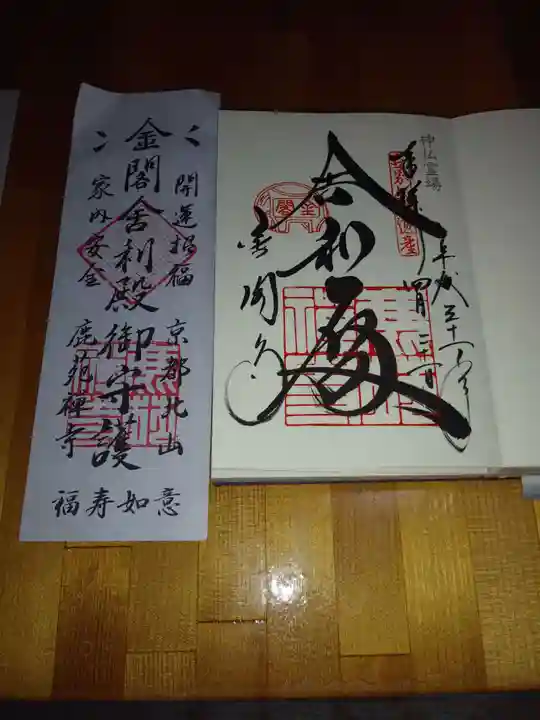 開運招福
京都北山
金閣舎利殿御守護
家内安全
鹿苑禅寺
福寿如意
神仏霊場
奉拝
平成三十一年
四月二十日
舎利殿
金閣寺
金閣